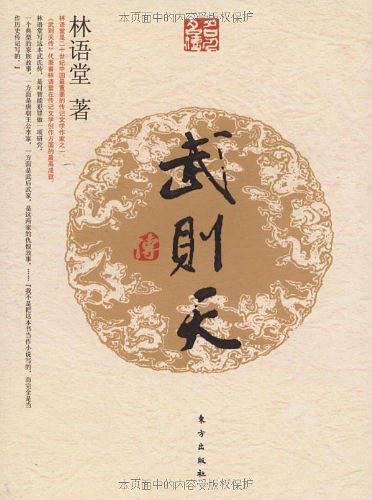 本页面中的内容受版权保护
林语堂 著
林语堂是二十世纪中国最重要的传记文学作家之一，
《武则天传》代表着林语堂在传记文学创作方面的最高成就。
林语堂写这本武氏传，是对智能犯罪做一项研究，
一个典型的家族故事，一方面是唐朝王公李家，一方面是武后武家，是这两家的仇恨故事。……“我不是把这本书当作小说写的，而完全是当
作历史传记写的。”
武則天
傳
東方出版社
本页面中的内容受版权保护